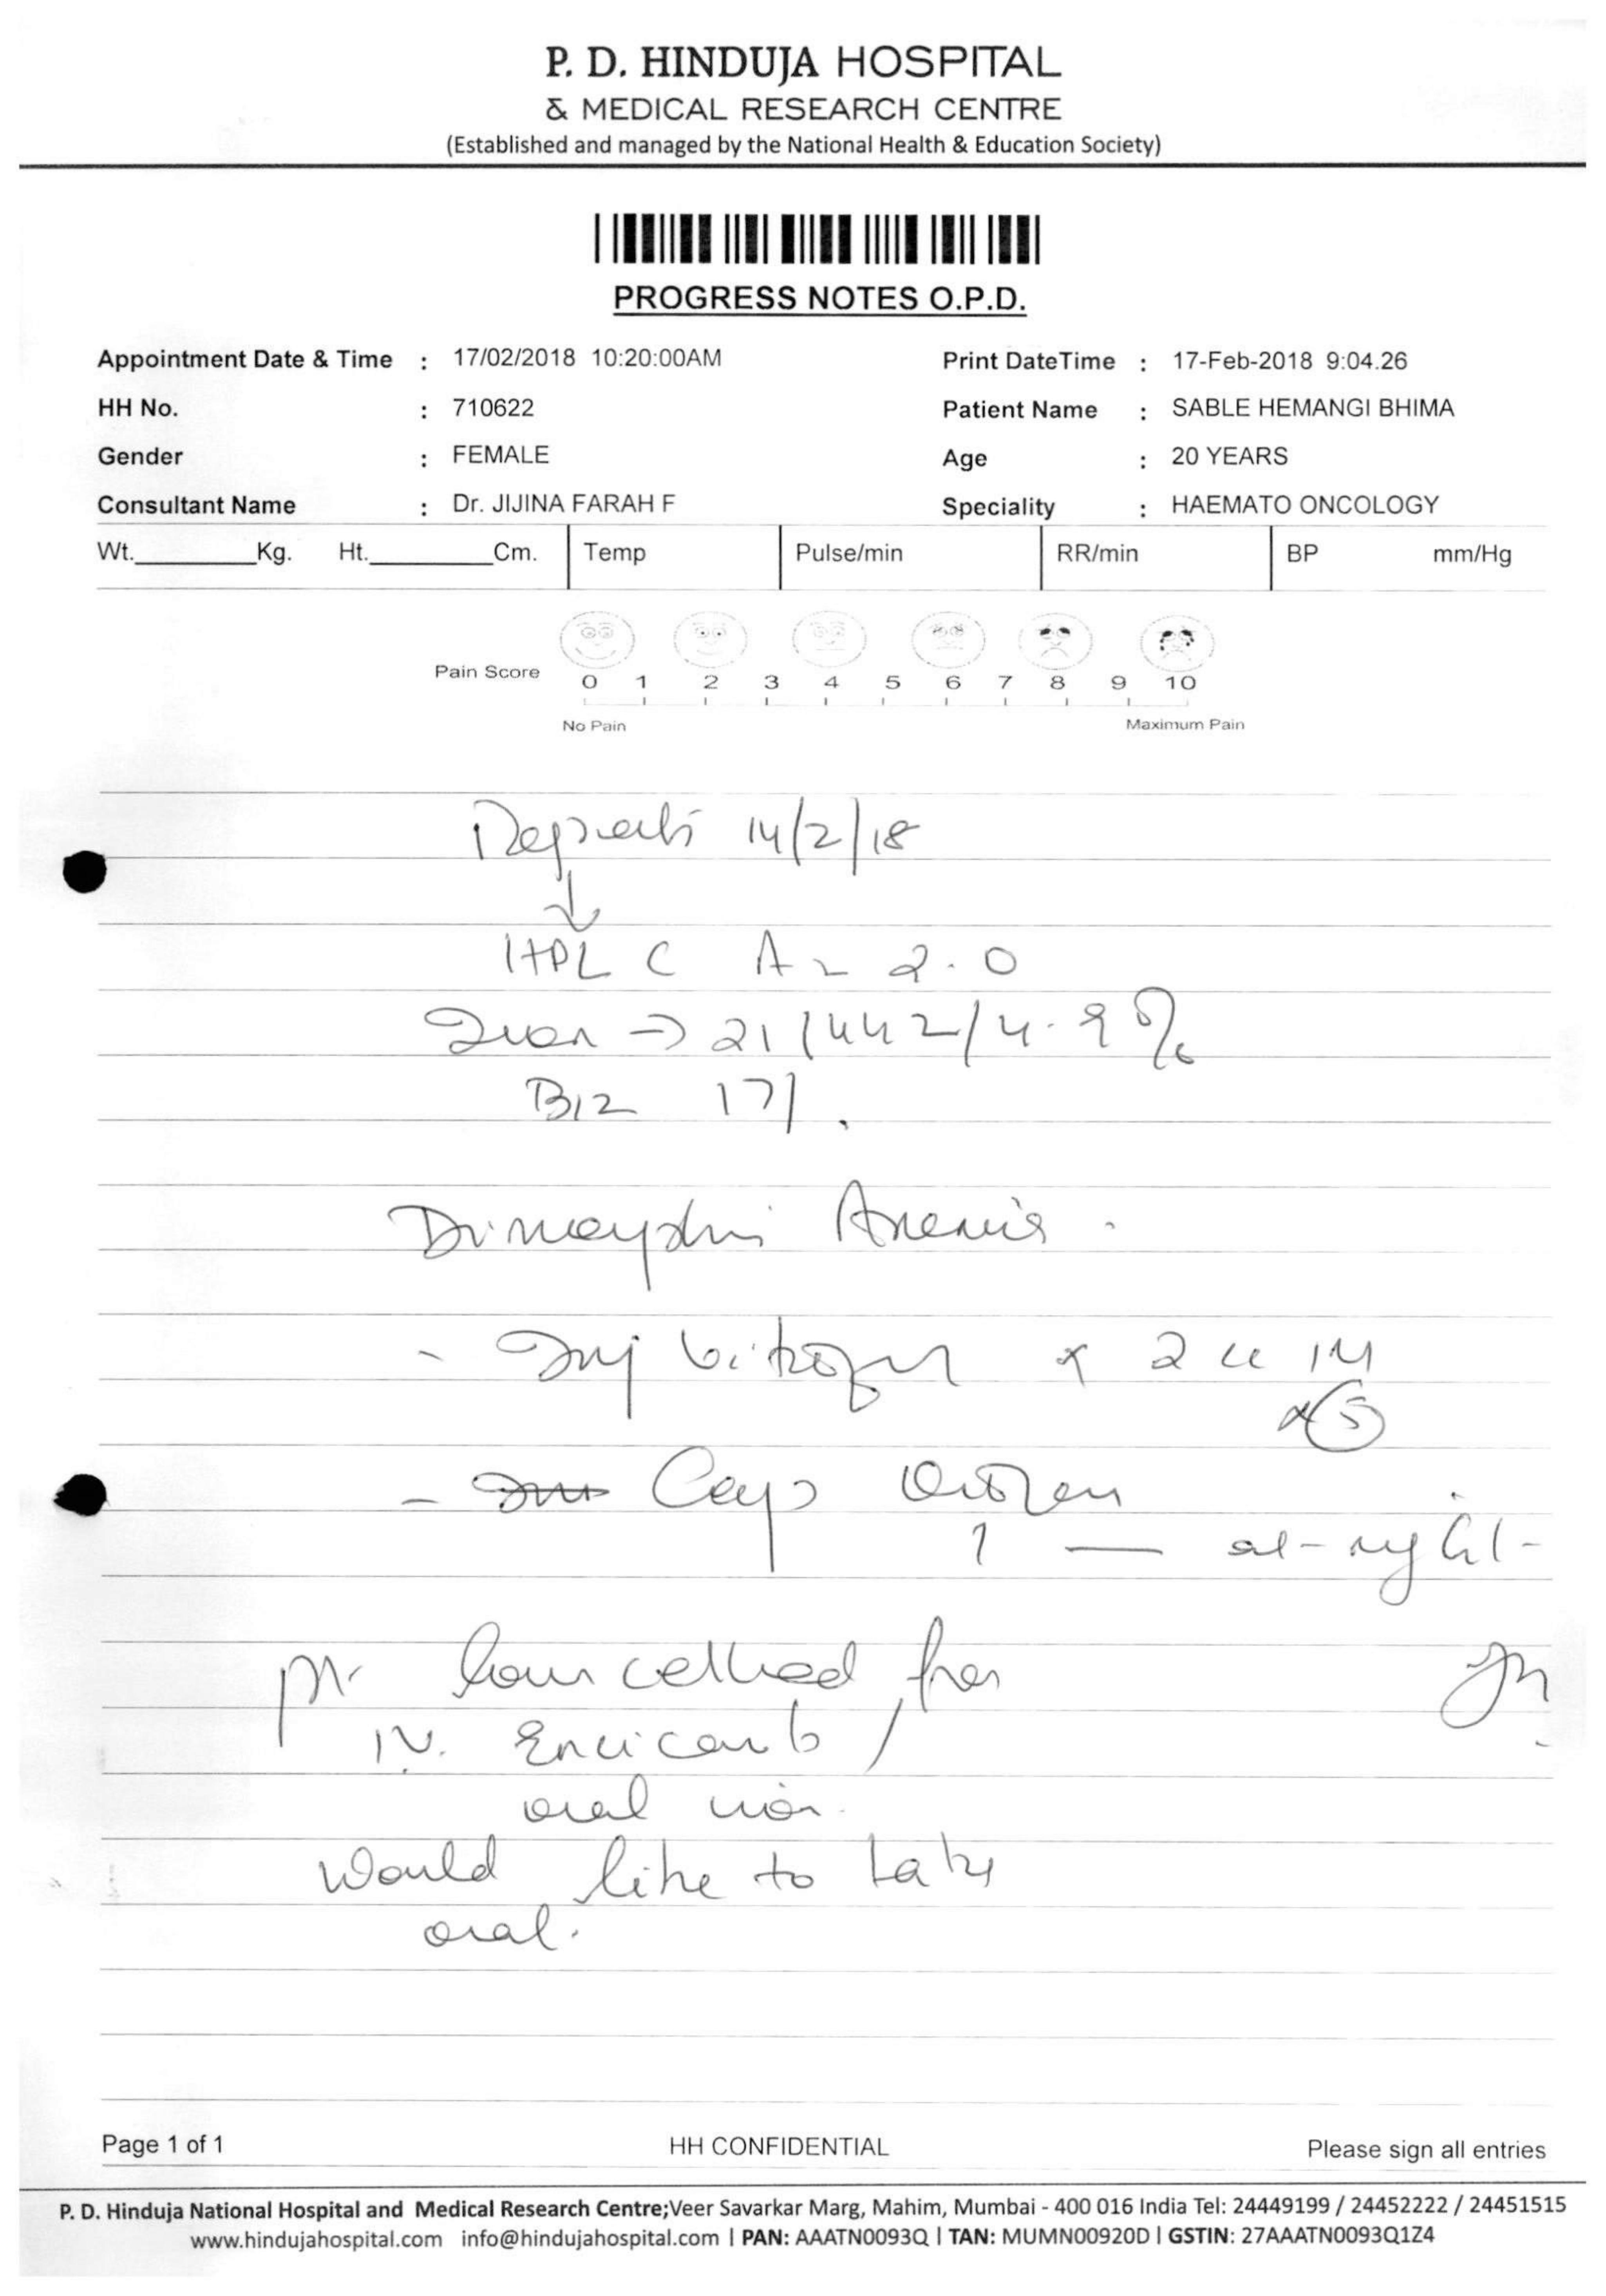 P. D. HINDUJA HOSPITAL
& MEDICAL RESEARCH CENTRE
(Established and managed by the National Health & Education Society)
PROGRESS NOTES O.P.D.
Appointment Date & Time : 17/02/2018 10:20:00AM Print DateTime : 17-Feb-2018 9:04.26
HH No. : 710622 Patient Name : SABLE HEMANGI BHIMA
Gender : FEMALE Age : 20 YEARS
Consultant Name : Dr. JIJINA FARAH F Speciality : HAEMATO ONCOLOGY
Wt. Kg. Ht. Cm. Temp Pulse/min RR/min BP mm/Hg
Pain Score 0 1 2 3 4 5 6 7 8 9 10
No Pain Maximum Pain
Reports 14/2/18
HPLC A2 2.0
Iron → 21/442/4.9%
B12 171.
Dimorphic Anemia.
- Inj x 2 cc IM
x 5
- Cap
1 — at-night-
Pt. Councelled for
IV. Encicarb /
oral iron.
Would like to take
oral.
Page 1 of 1 HH CONFIDENTIAL Please sign all entries
P. D. Hinduja National Hospital and Medical Research Centre;Veer Savarkar Marg, Mahim, Mumbai - 400 016 India Tel: 24449199 / 24452222 / 24451515
www.hindujahospital.com info@hindujahospital.com | PAN: AAATN0093Q | TAN: MUMN00920D | GSTIN: 27AAATN0093Q1Z4